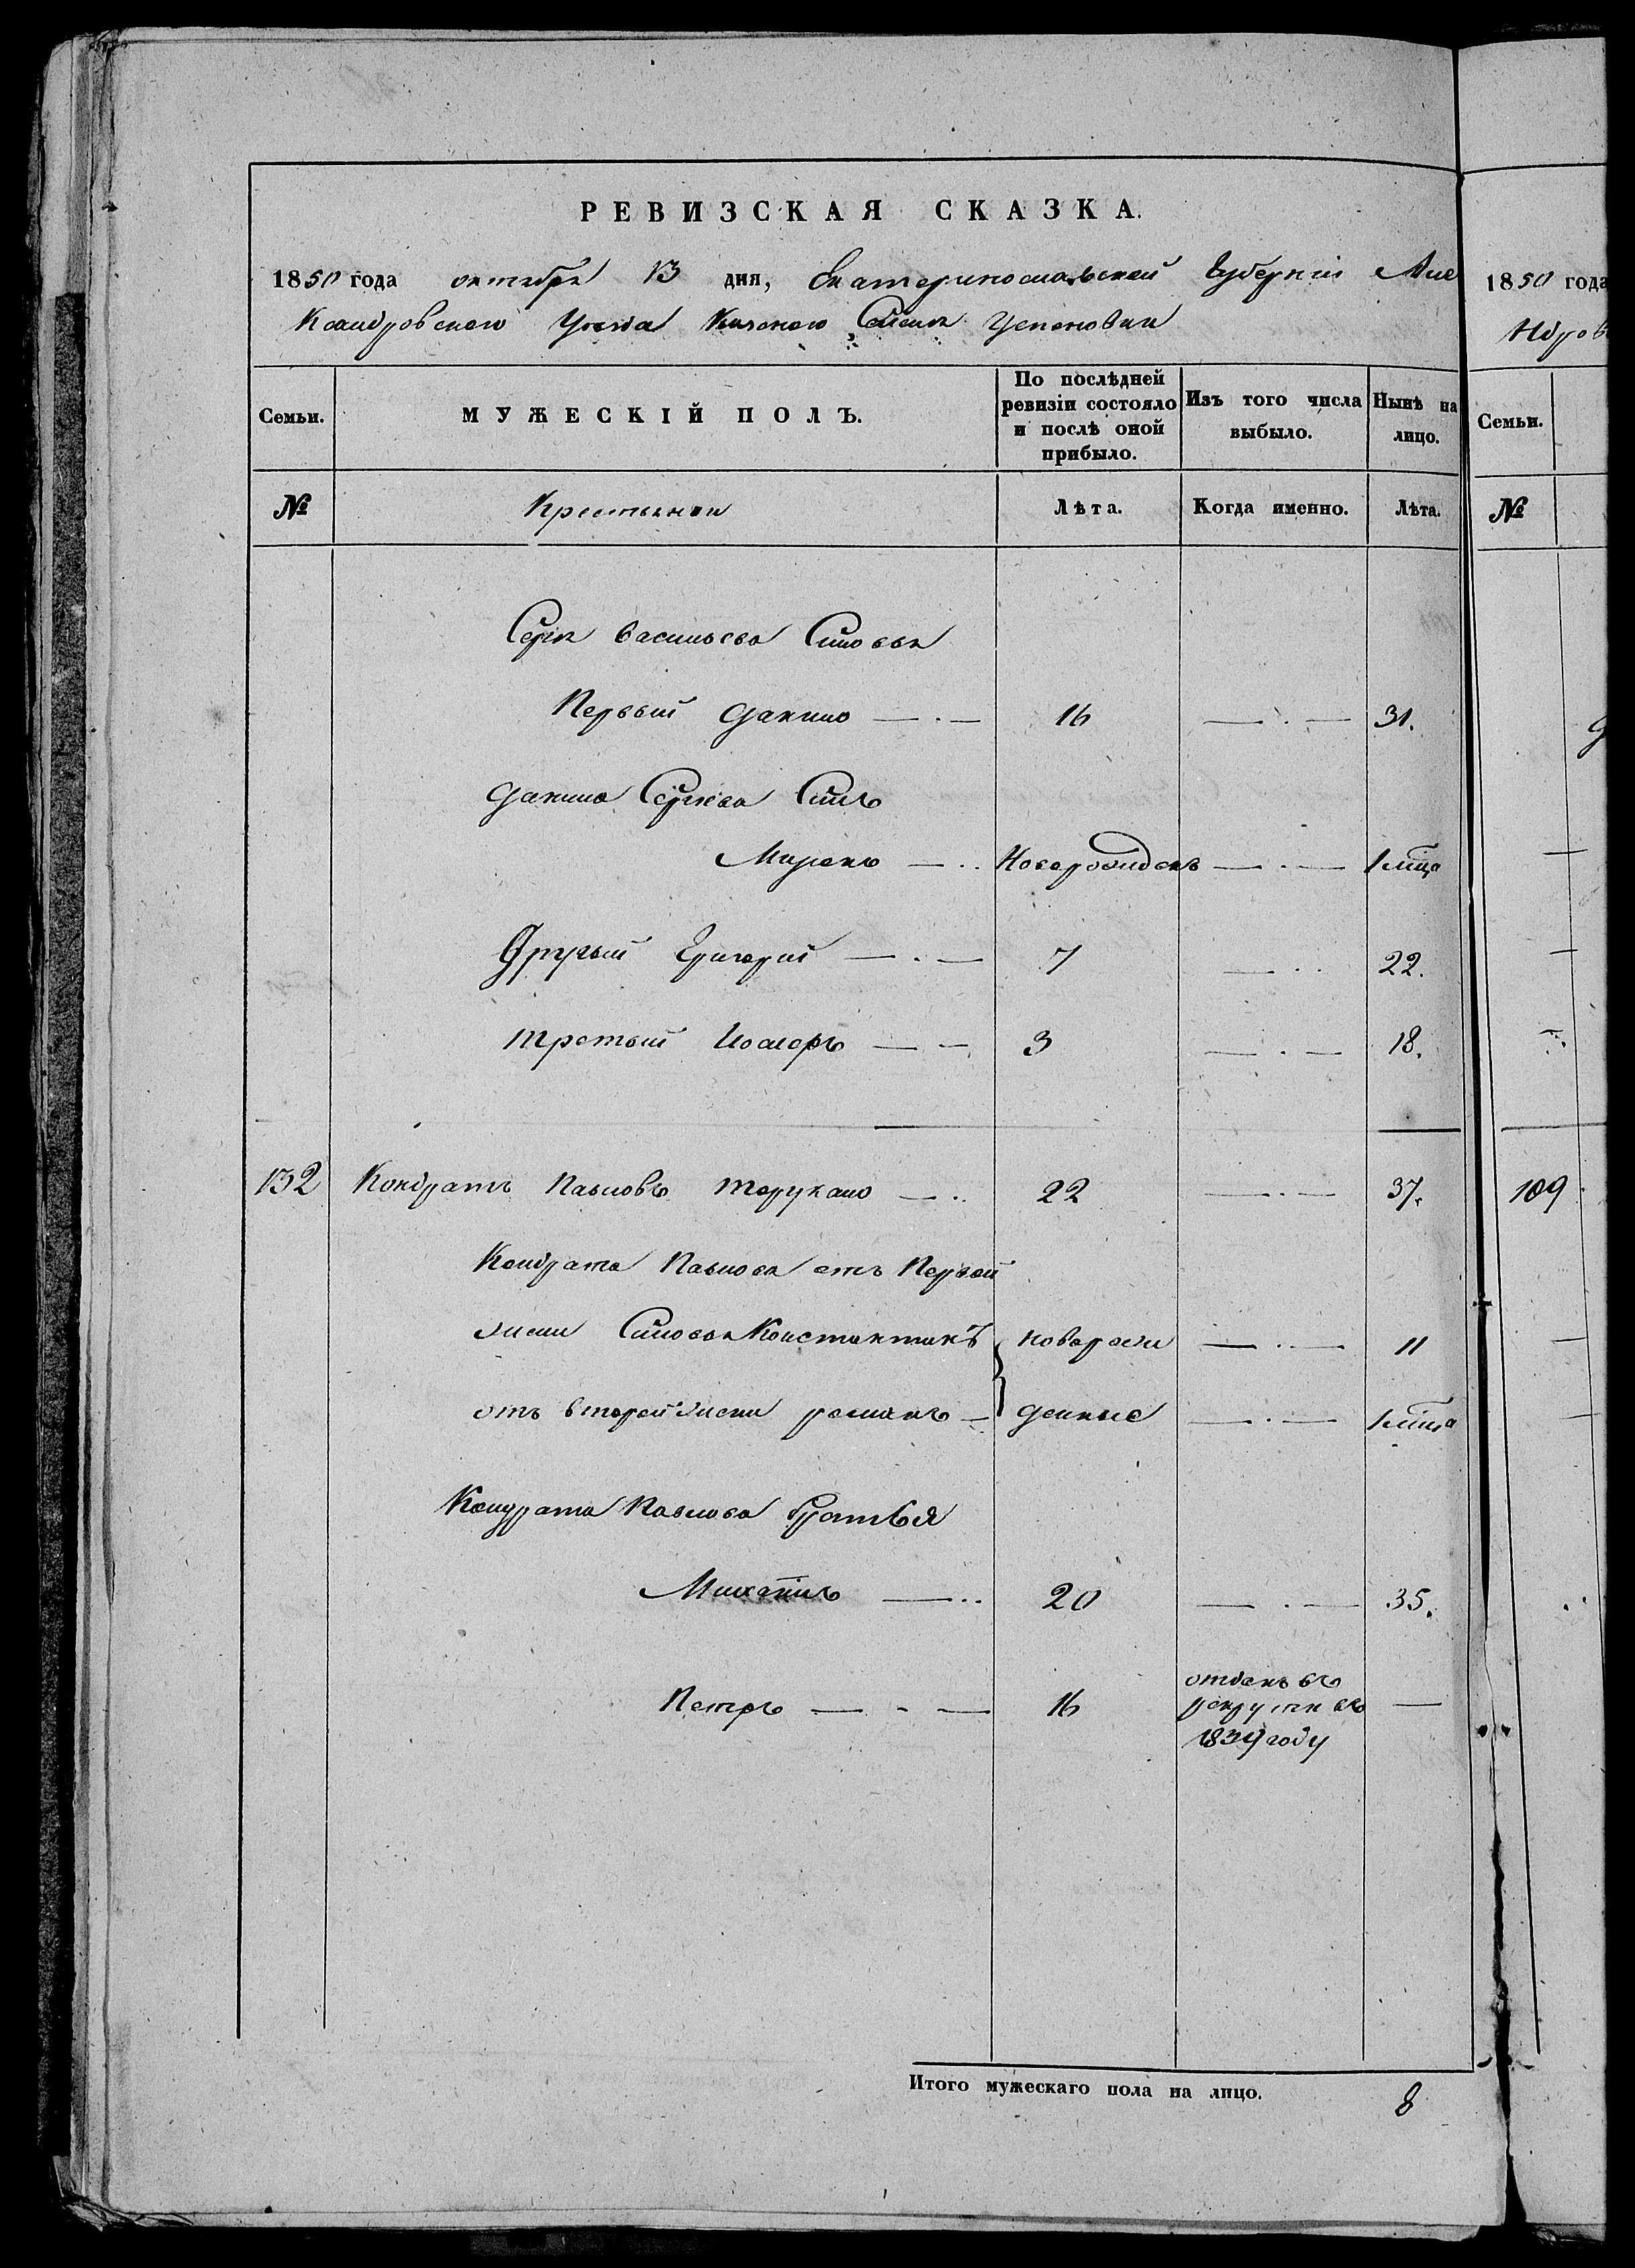 РЕВИЗСКАЯ СКАЗКА.
1850 года октября 13 дня, Екатеринославской Губернии Але
ксандровского Уезда Села Успеновки
Семьи. МУЖЕСКІЙ ПОЛЪ. По послѣдней ревизіи состояло и послѣ оной прибыло. Изъ того числа выбыло. Нынѣ на лицо.
№ Крестьяни Лѣта. Когда именно. Лѣта.
Сергя Васильева Сыновья
Первый Данило — . — 16 — . — 31.
Данила Сергѣева Сынъ
Миронъ — . . Новорожденъ — . — 1 мца
Другый Григорий — . — 7 — . . 22.
третый Иосифъ — — 3 — . — 18.
132 Кондратъ Павловъ — . . 22 — . — 37.
Кондрата Павлова отъ Первой
жены Сыновья Констактинъ новорож — . — 11
отъ второй жены романъ — денные — . — 1 мца
Кондрата Павлова братья
Михаилъ — . . 20 — . — 35.
Петръ — - — 16 отданъ въ —
рекруты въ
1839 году
Итого мужескаго пола на лицо. 8
1850 года
ндров
Семьи.
№
109